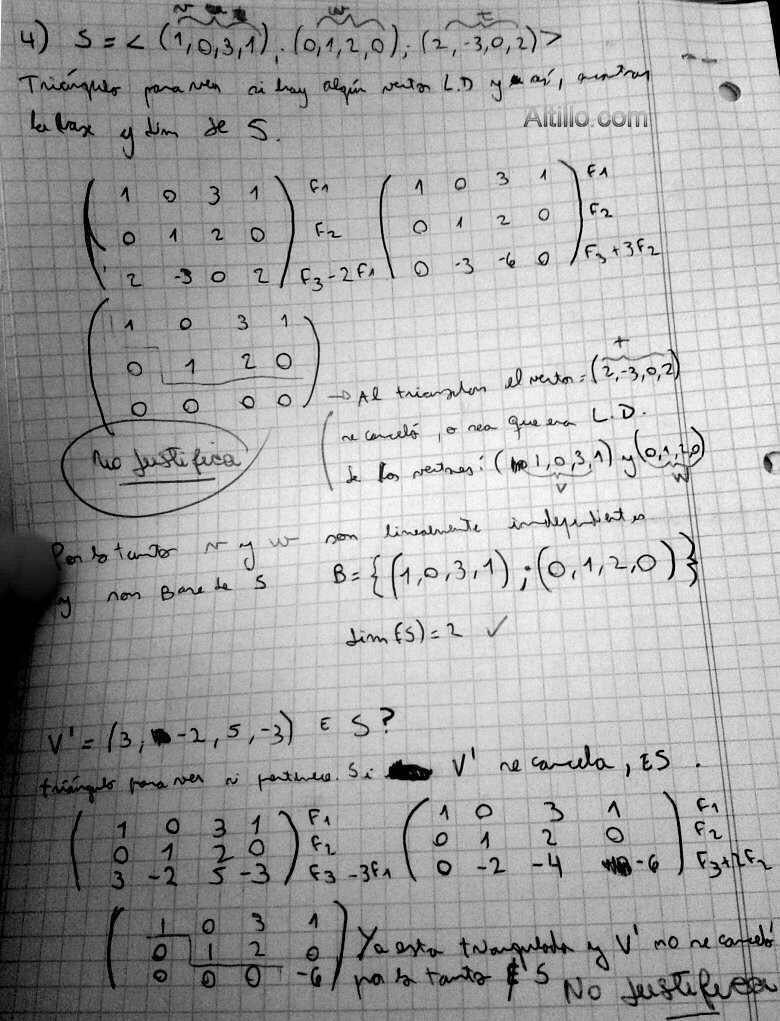 v w t
4) S = < (1,0,3,1) ; (0,1,2,0) ; (2,-3,0,2) >
Triángulo para ver si hay algún vector L.D y así, encontrar
la base y dim de S.
Altillo.com
1 0 3 1 F1 1 0 3 1 F1
0 1 2 0 F2 0 1 2 0 F2
2 -3 0 2 F3-2F1 0 -3 -6 0 F3+3F2
1 0 3 1
0 1 2 0
0 0 0 0
t
→ Al triangular el vector = (2,-3,0,2)
se canceló, o sea que era L.D.
de los vectores: (1,0,3,1) y (0,1,2,0)
v w
No justifica
Por lo tanto v y w son linealmente independientes
y son Base de S B = {(1,0,3,1) ; (0,1,2,0)}
dim(S) = 2 ✓
V' = (3, -2, 5, -3) ∈ S?
triángulo para ver si pertenece. Si V' se cancela, ∈ S.
1 0 3 1 F1 1 0 3 1 F1
0 1 2 0 F2 0 1 2 0 F2
3 -2 5 -3 F3-3F1 0 -2 -4 -6 F3+2F2
1 0 3 1
0 1 2 0
0 0 0 -6
Ya esta triangulada y V' no se canceló
por lo tanto ∉ S
No justifica